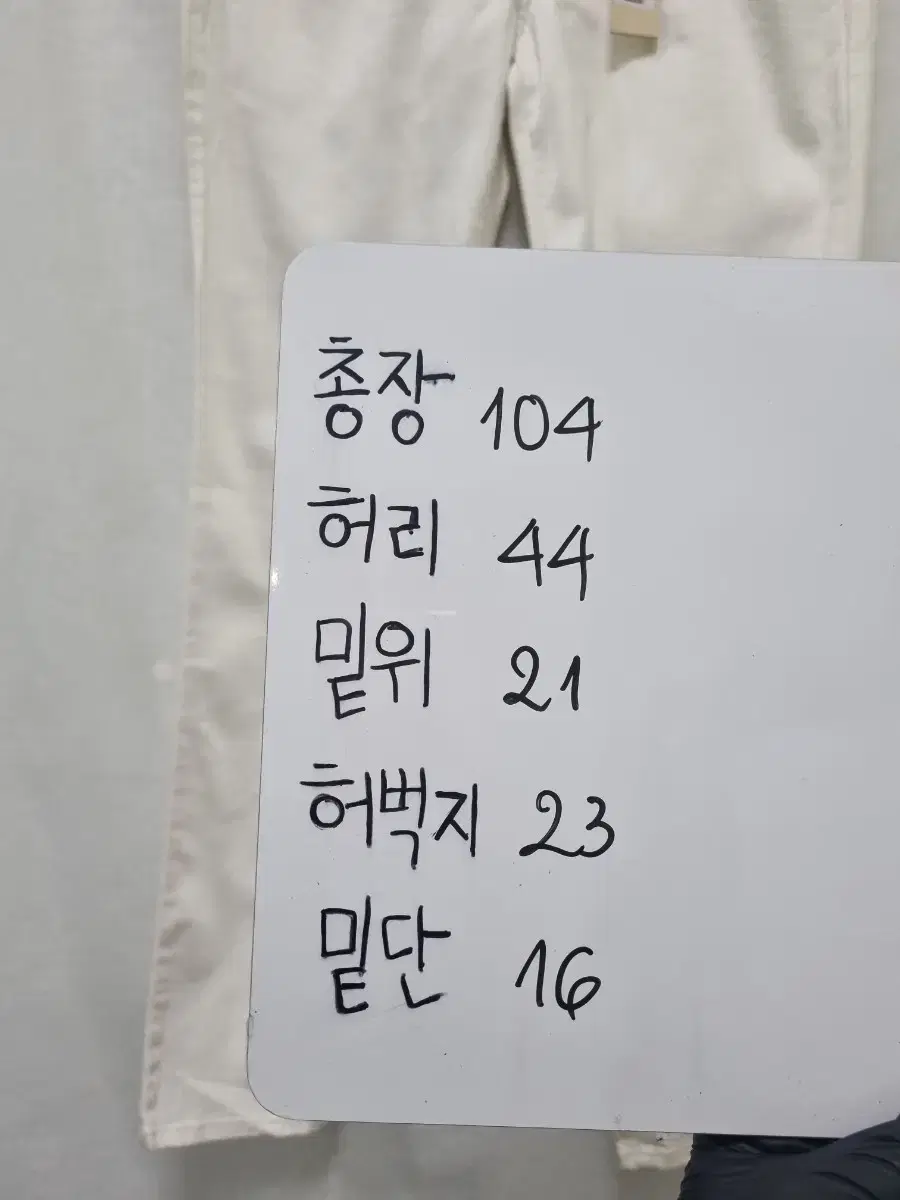 총장 104
허리 44
밑위 21
허벅지 23
밑단 16